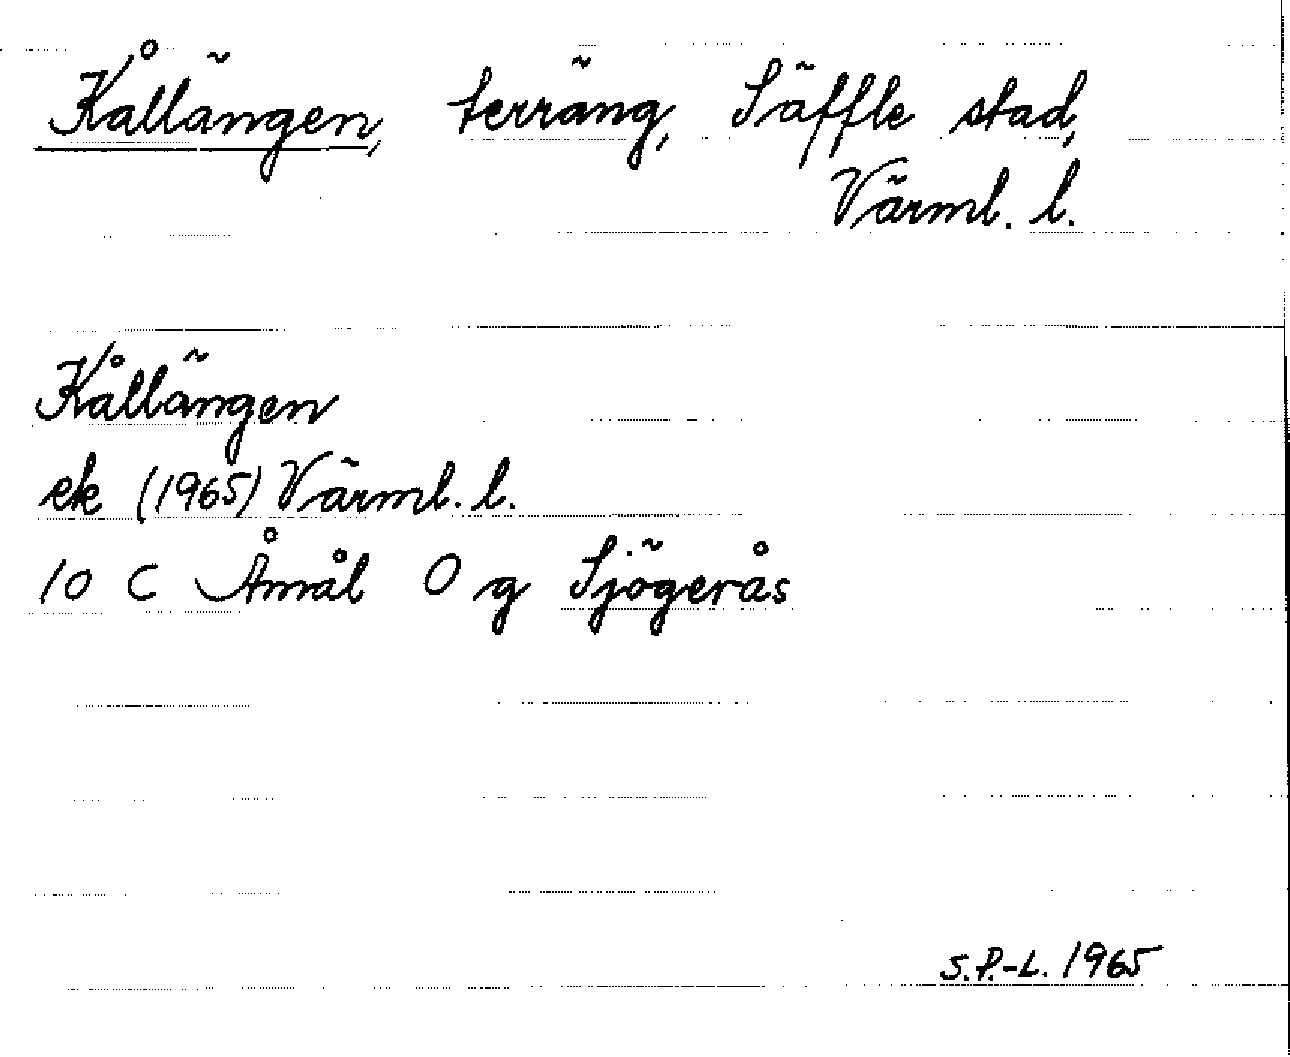 Kållängen, terräng, Säffle stad,
Värml. l.
Kållängen
ek (1965) Värml. l.
10 C Åmål O g Sjögerås
S.P.-L. 1965